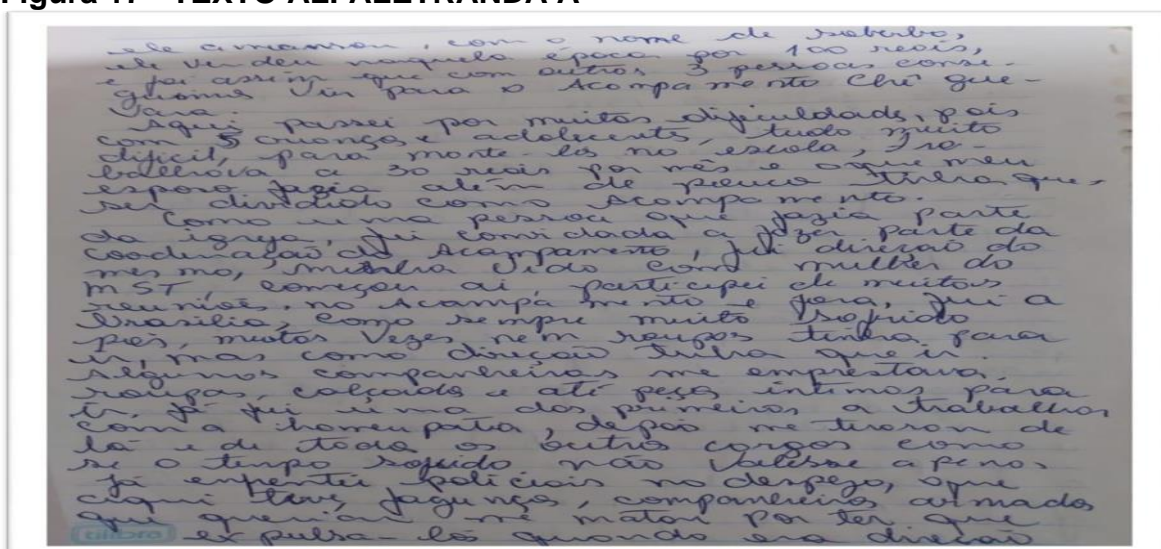 Figura 17 - TEXTO ALFALETRANDA A
ele amanson, com o nome de soberbo,
ele vendeu naquela época por 100 reais,
e foi assim que com outros 3 pessoas conse-
guimos vir para o Acompamento Chê gue-
vara.
Aqui passei por muitas dificuldads, pois
com 5 crianças e adolecents, tudo muito
dificil, para monte-los no escola, Tra-
balhova a 30 reais por mês e oque meu
esposo fazia além de pouco tinha que,
ser dividido como Acompamento.
Como uma pessoa que fazia parte
da igreja, fui convidada a fazer parte da
coodenação do Acampamento, fui direção do
mesmo, minha vida com mulher do
MST, começou ai, participei de muitas
reuniões, no Acampamento e fora, fui a
Brasilia, como sempre muito sofrido
pois, muitas vezes nem roupas tinha para
ir, mas como direção tinha que ir.
Algumas companheiras me emprestava,
roupas, calçados e até peças intimas para
ir. Já fui uma das primeiras a trabalhar
com a homeupatia, depois me tiraram de
lá e de todos os outros cargos como
se o tempo sofrido não valesse apenas
já enfrentei policiais no despejo, que
aqui teve, jagunços, companheiros armados
que queriam me matar por ter que
expulsa-los quando era direção
tilibra